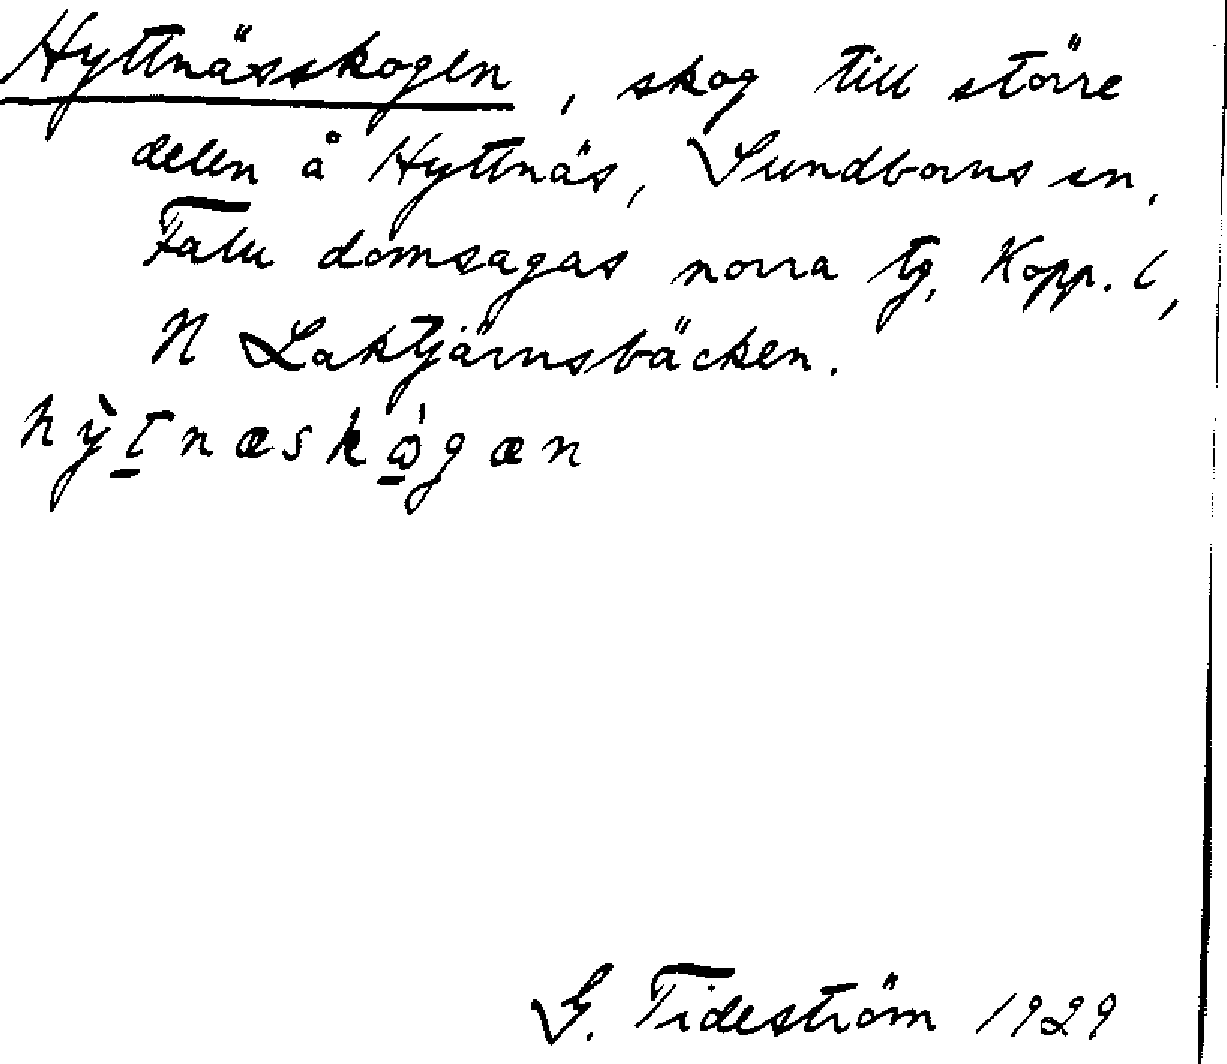 Hyttnässkogen, skog till större
delen å Hyttnäs, Sundborns sn.
Falu domsagas norra tg, Kopp. l,
N Laktjärnsbäcken.
hỳt̲næskǫ́gæn
G. Tideström 1929